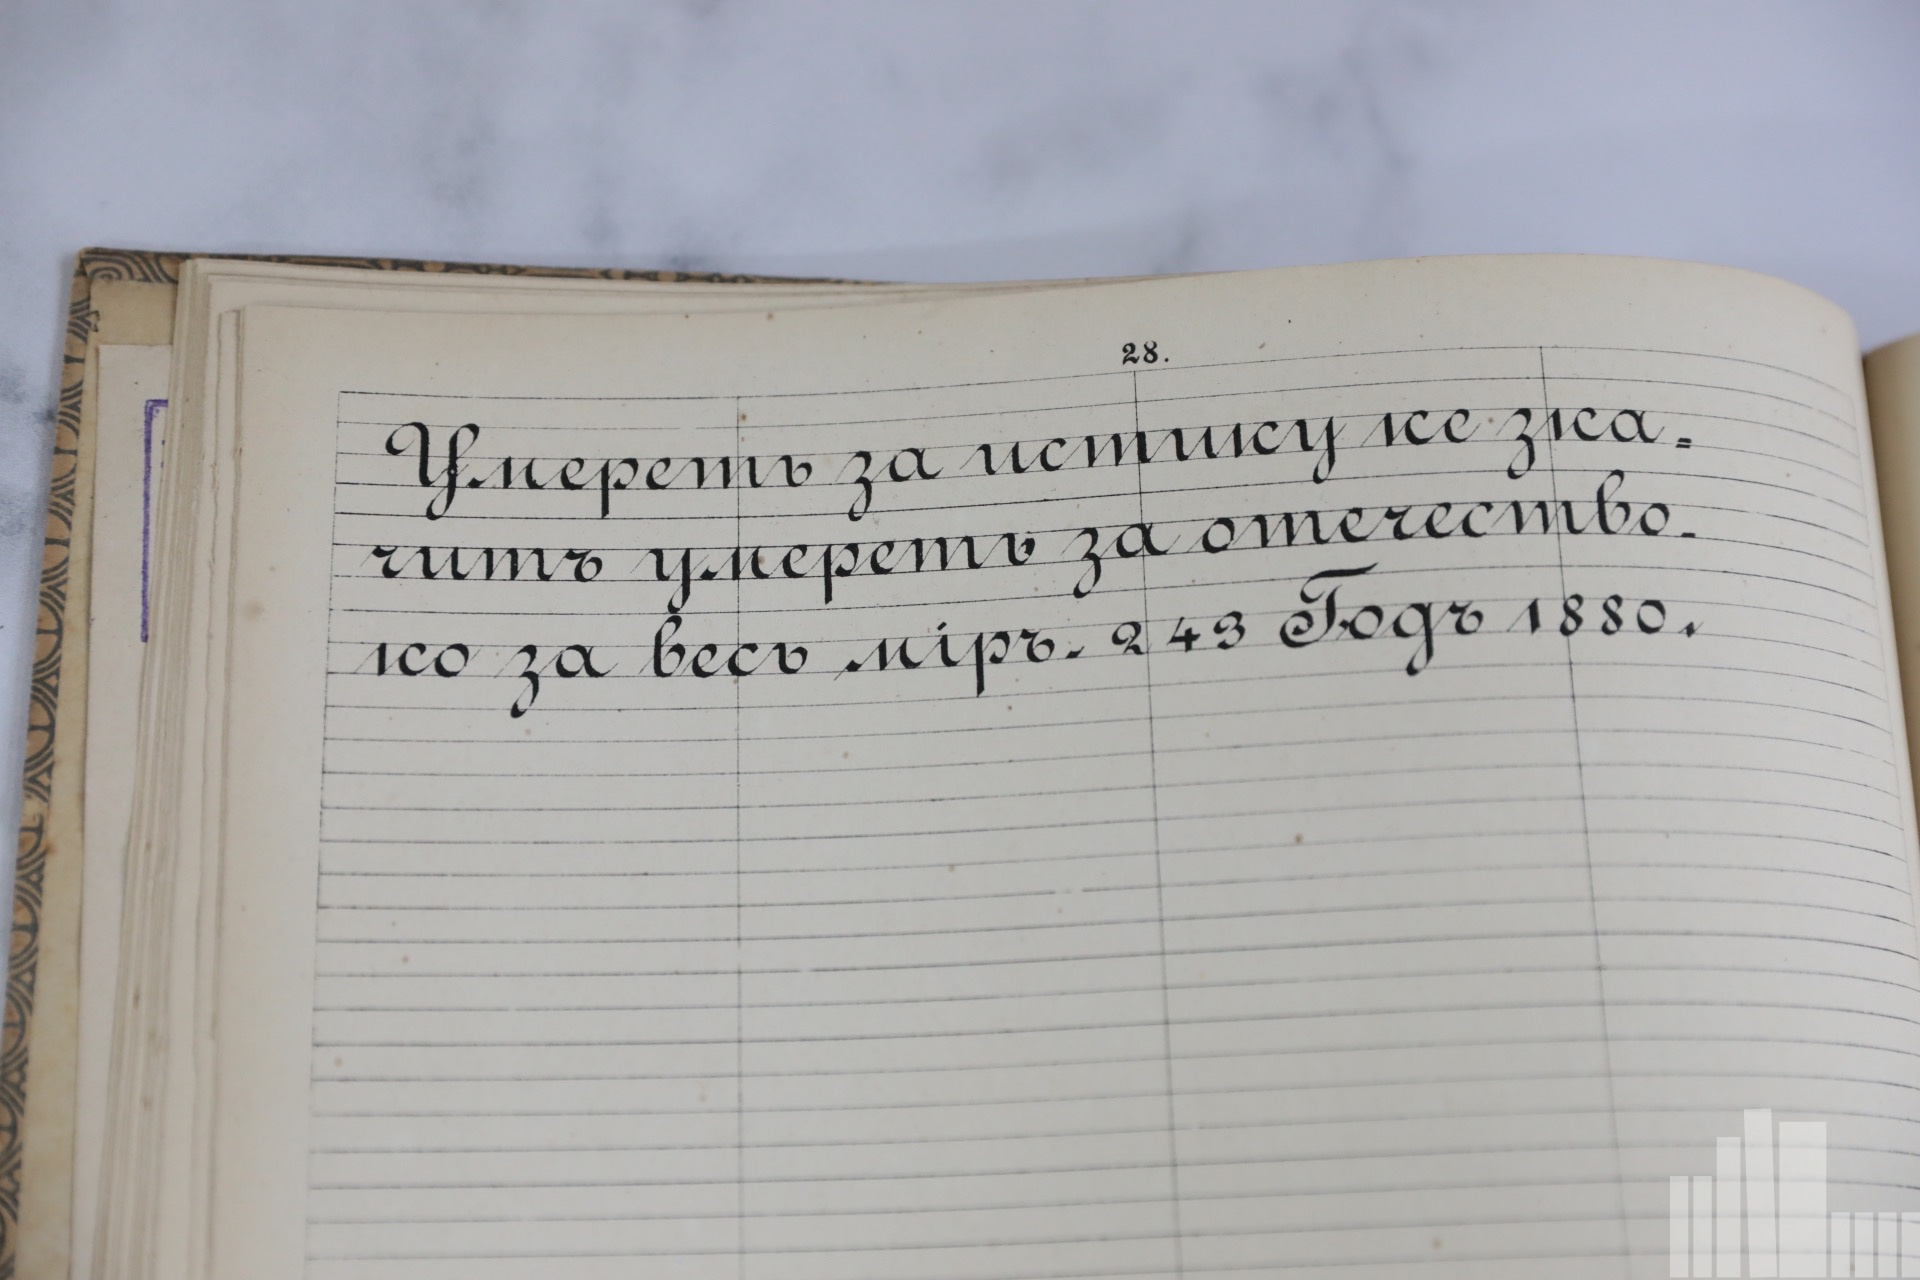 28.
Умереть за истину не зна=
читъ умереть за отечество-
но за весь мiръ. 243 Годъ 1880.